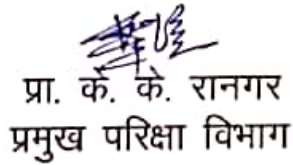 प्रा. के. के. रानगर
प्रमुख परिक्षा विभाग